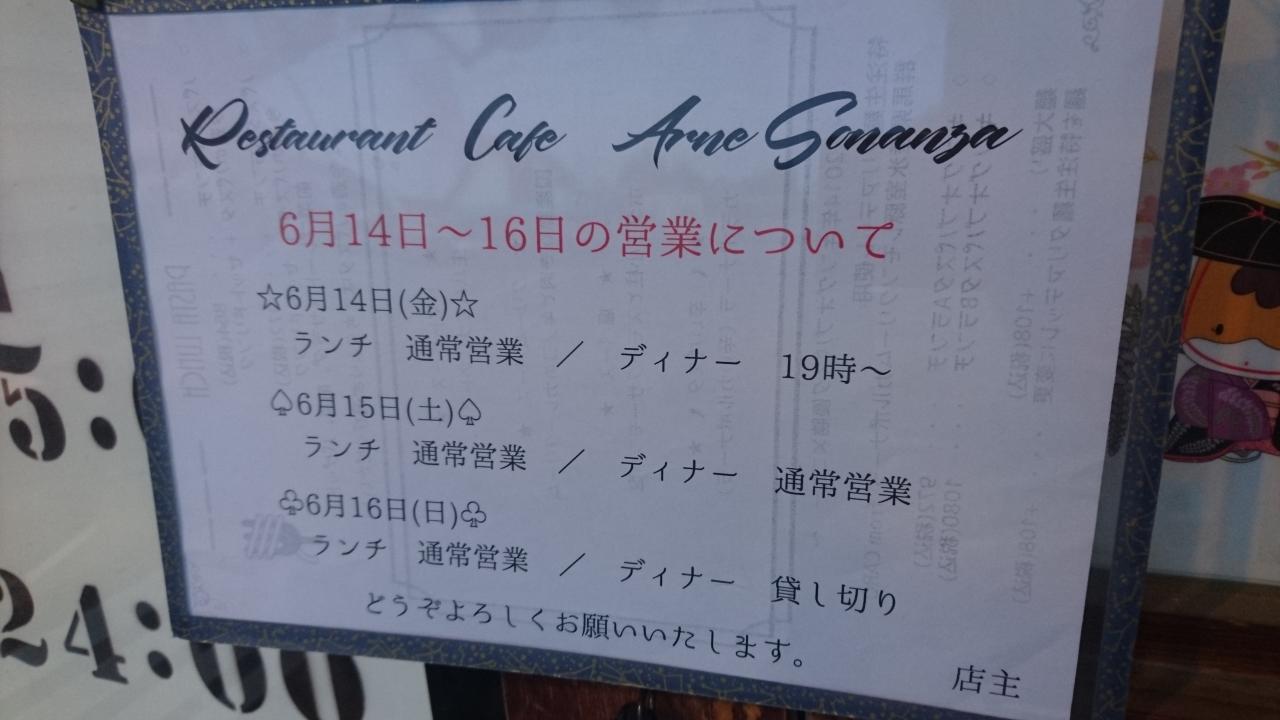 Restaurant Cafe Arne Sonanza
6月14日～16日の営業について
☆6月14日(金)☆
ランチ 通常営業 ／ ディナー 19時～
♤6月15日(土)♤
ランチ 通常営業 ／ ディナー 通常営業
♧6月16日(日)♧
ランチ 通常営業 ／ ディナー 貸し切り
どうぞよろしくお願いいたします。
店主
24:00